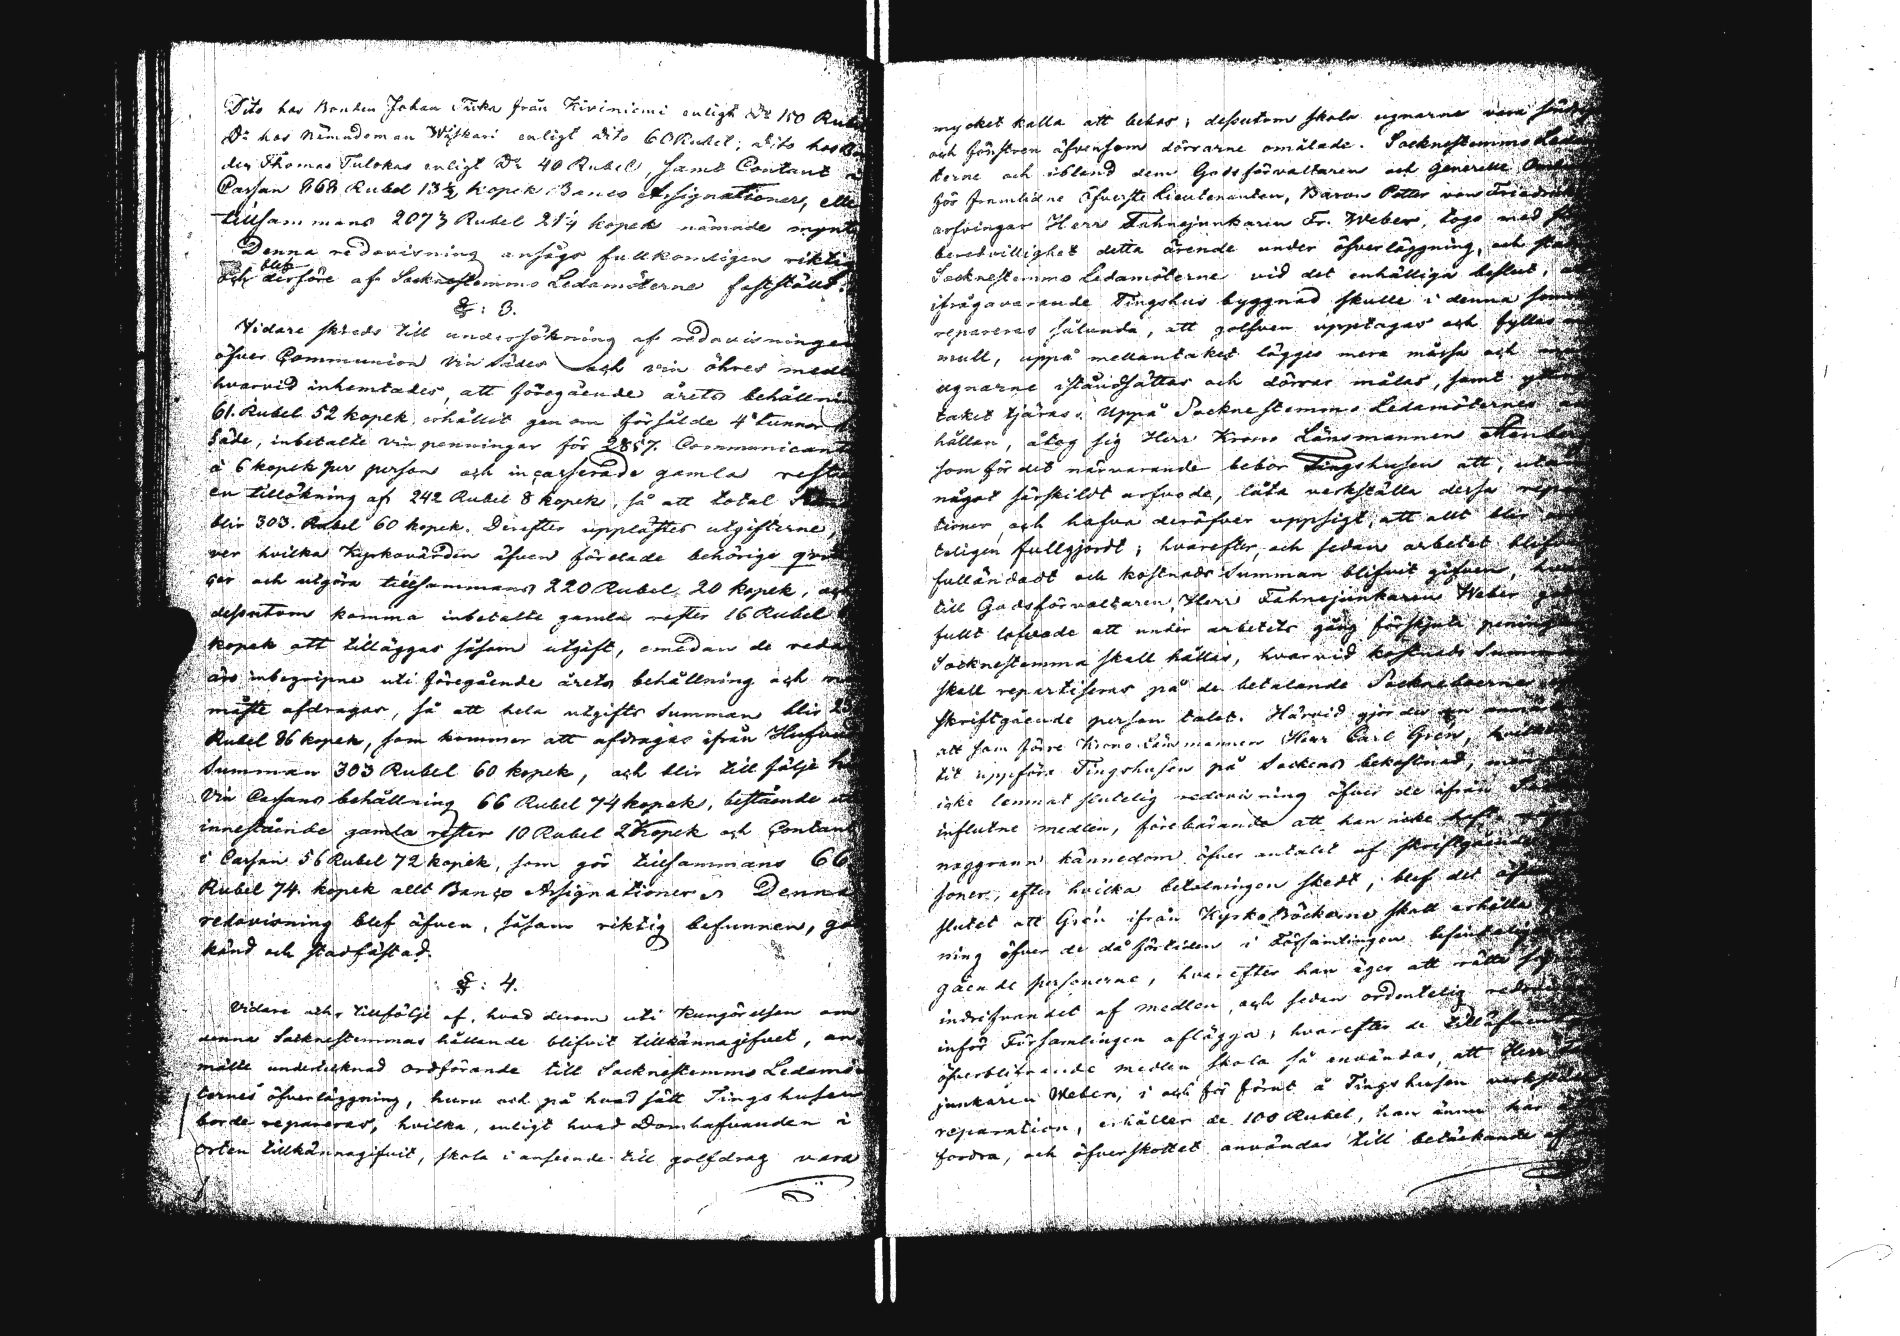 Dito hos Bonden Johan Tuka från Kiviniemi enligt Do 150 Rubel
Do hos Nämndeman Wäskari enligt dito 60 Rubel; dito hos Bon
den Thomas Tulokas enligt Do 40 Rubel, samt Contant i
Cassan 868 Rubel 13½ kopek Banco Assignationer, eller
tillsammans 2073 Rubel 21¼ kopek nämnde mynt
Denna redovisning ansågs fullkomligen riktig
och blef derföre af Socknestemmo Ledamöterne fastställd.
§: 3.
Vidare skreds till undersökning af redovisningen
öfver Communion Vin Sädes och vin öhres medlen
hvarvid inhemtades, att föregående årets behållning
61. Rubel 52 kopek, erhållit genom försålde 4 tunnor
Säde, inbetalte vin penningar för 2857. Communicanter
à 6 kopek per person och incasserade gamla rester
en tillökning af 242 Rubel 8 kopek, så att total Summan
blir 303. Rubel 60 kopek. Derefter upplästes utgifterne,
ver hvilka Kyrkovärden äfven företedde behörige
och utgöra tillsammans 220 Rubel, 20 kopek, och
dessutom komma inbetalte gamla rester 16 Rubel
kopek att tilläggas såsom utgift, emedan de redan
äro inbegripne uti föregående årets behållning och
måste afdragas, så att hela utgifts Summan blir
Rubel 86 kopek, som kommer att afdragas ifrån Hufvud
Summan 303 Rubel 60 kopek, och blir till följe
Vin Cassans behållning 66 Rubel 74 kopek, bestående
innestående gamla rester 10 Rubel 2 Kopek och Contant
i Cassan 56 Rubel 72 kopek, som gör tillsammans 66
Rubel 74. kopek allt Banco Assignationer. Denna
redovisning blef äfven, såsom riktig befunnen, god
känd och stadfästad.
§: 4.
Vidare och tillfölje af, hvad derom uti Kungörelsen om
denna Socknestemmas hållande blifvit tillkännagifvet, an
mälte undertecknad ordförande till Socknestemmo Ledamö
ternes öfverläggning, huru och på hvad sätt Tingshusen
borde repareras, hvilka, enligt hvad Domhafvanden i
orten tillkännagifvit, skola i anseende till golfdrag vara
mycket kalla att bebos; dessutom skola ugnarne vara
och fönstren äfvensom dörrarne omålade. Socknestemmo Ledamö
terne och ibland dem Godsförvaltaren och Generelle
för framlidne Öfverste Lieutenanten, Baron Petter von
arfvingar Herr Fahnejunkaren Fr. Weber, togo med
beredvillighet detta ärende under öfverläggning, och
Socknestemmo Ledamöterne vid det enhälliga beslut, att
ifrågavarande Tingshus byggnad skulle i denna
repareras sålunda, att golfven upptagas och fyllas
mull, uppå mellantaket lägges mera måssa och
ugnarne iståndsättas och dörrar målas, samt
taket tjäras. Uppå Socknestemmo Ledamöternes
hållan, åtog sig Herr Krono Länsmannen
som för det närvarande bebor Tingshusen att, utan
något särskildt arfvode, låta verkställa dessa repara
tioner, och hafva deröfver uppsigt, att allt blir
teligen fullgjordt; hvarefter, och sedan arbetet blifvit
fulländadt och kostnads Summan blifvit gifven,
till Godsförvaltaren, Herr Fahnejunkaren Weber
fullt lofvade att under arbetets gång förskjuta
Socknestemma skall hållas, hvarvid kostnads Summan
skall repartiseras på de betalande Socknebo­erne
skriftgående person talet. Härvid gjordes
att som förre Krono Länsmannen Herr Carl Grén,
tit uppföra Tingshusen på Sockens bekostnad,
icke lemnat slutelig redovisning öfver de ifrån
influtne medlen, förebärande att han icke haft
noggrann kännedom öfver antalet af skriftgående
soner, efter hvilka betalningen skedt; blef det
slutet att Grén ifrån Kyrko Böckerne skall erhålla
ning öfver de då förtiden i Församlingen
gående personerne, hvarefter han äger att
indrifvandet af medlen, och sedan ordentelig
inför Församlingen aflägga; hvarefter de
öfverblifvande medlen skola så användas, att Herr
junkaren Weber, i och för förut å Tingshusen
reparation, erhåller de 100 Rubel, han ännu har
fordra, och öfverskottet användas till betäckande af